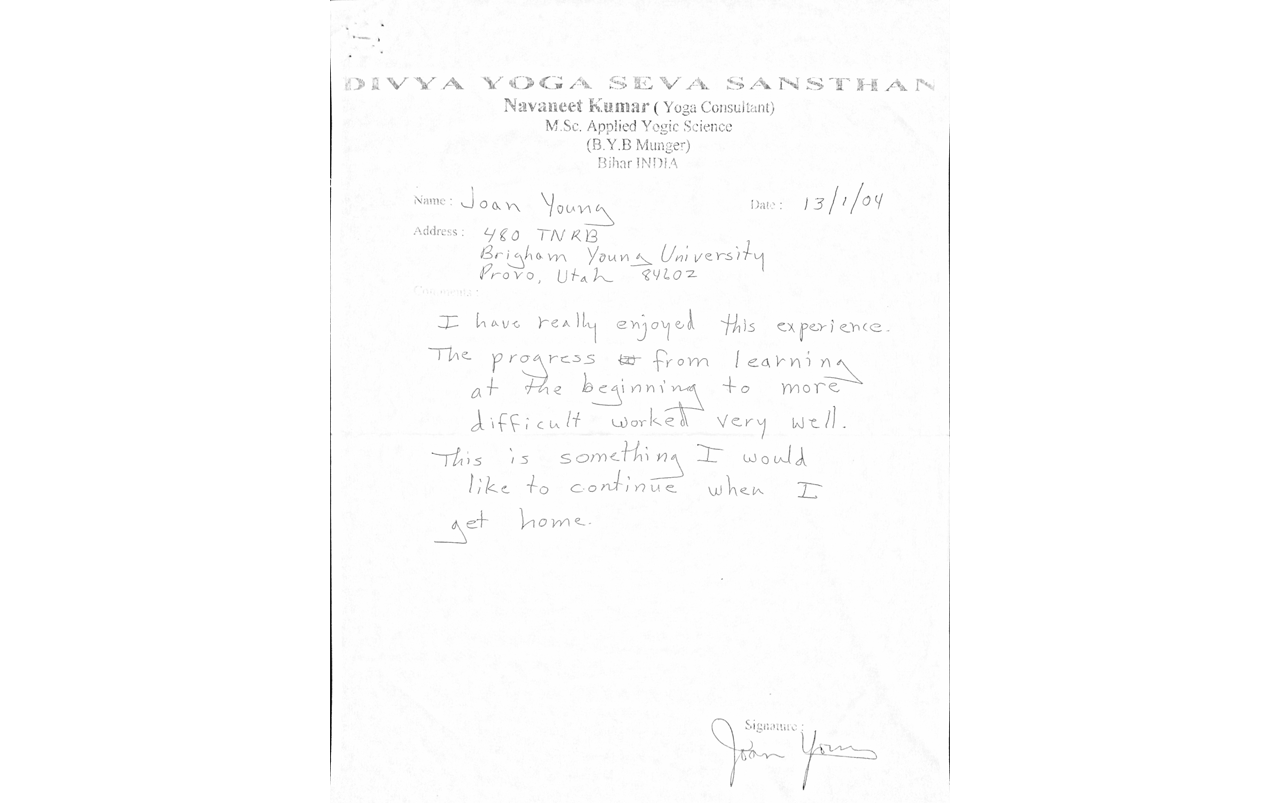 DIVYA YOGA SEVA SANSTHAN
Navaneet Kumar ( Yoga Consultant)
M.Sc. Applied Yogic Science
(B.Y.B Munger)
Bihar INDIA
Name : Joan Young Date : 13/1/04
Address : 480 TNRB
Brigham Young University
Provo, Utah 84602
Comments :
I have really enjoyed this experience.
The progress from learning
at the beginning to more
difficult worked very well.
This is something I would
like to continue when I
get home.
Signature :
Joan Young